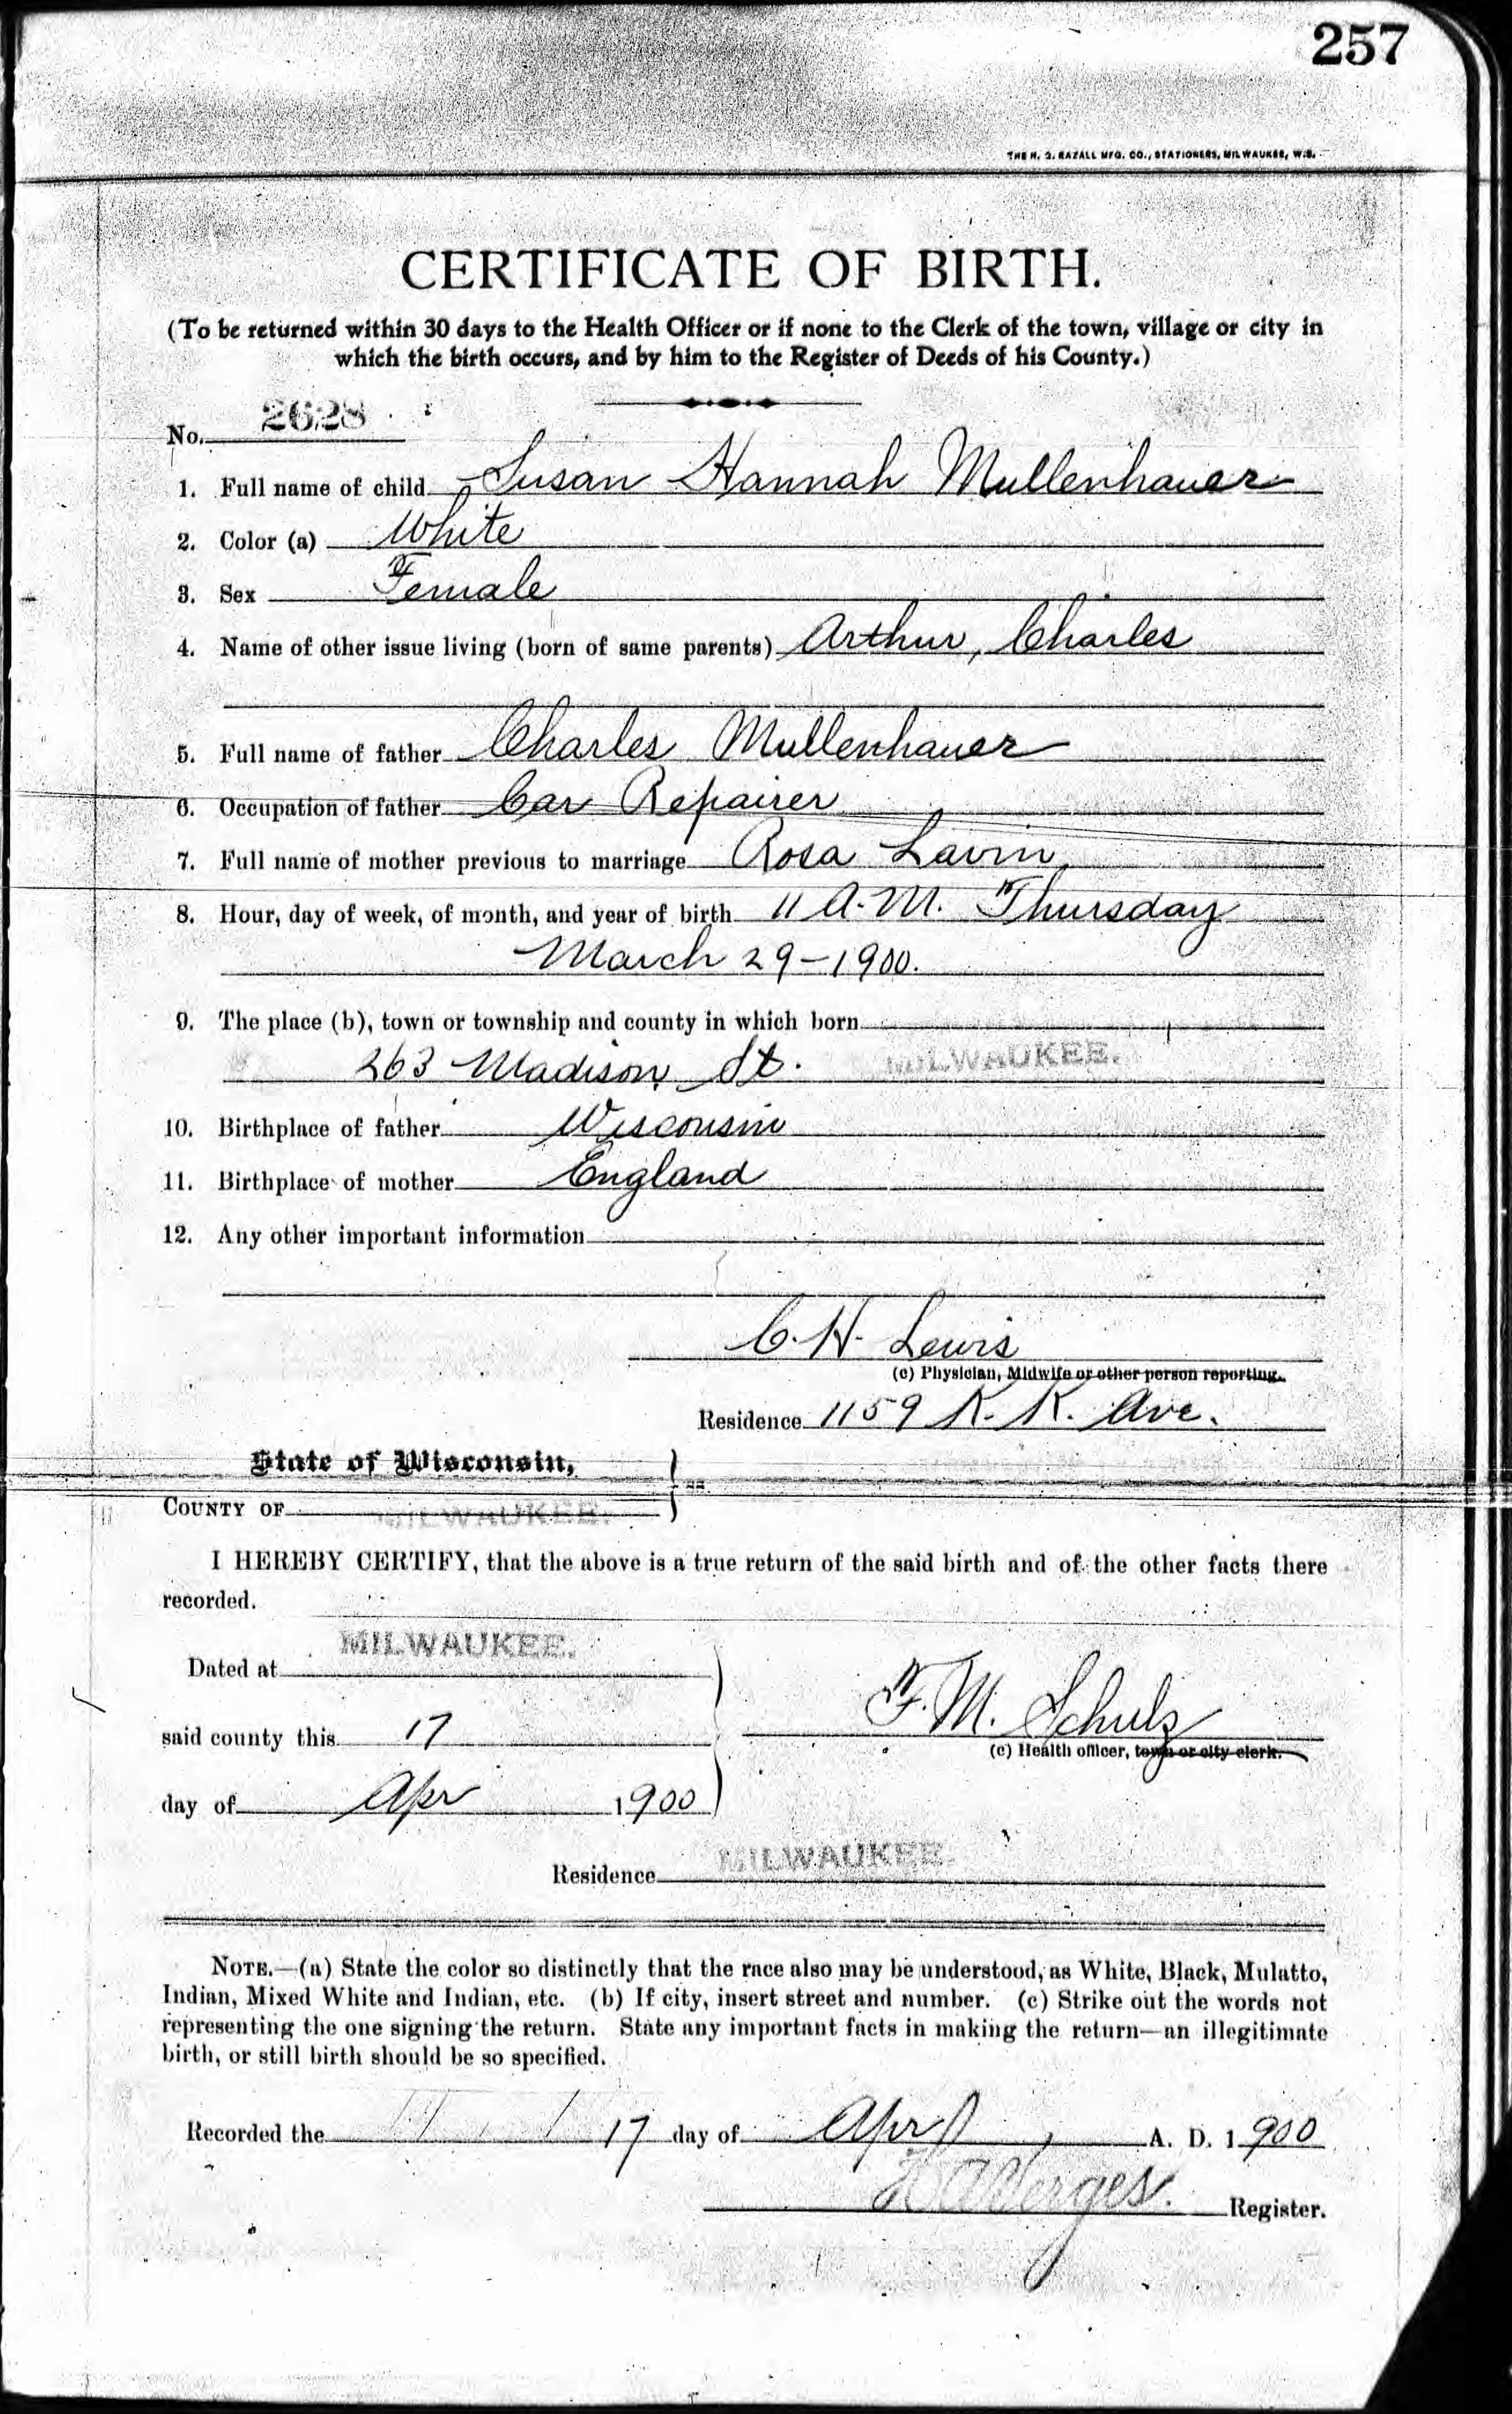 257
THE H. G. RAZALL MFG. CO., STATIONERS, MILWAUKEE, WIS.
CERTIFICATE OF BIRTH.
(To be returned within 30 days to the Health Officer or if none to the Clerk of the town, village or city in
which the birth occurs, and by him to the Register of Deeds of his County.)
No. 2628
1. Full name of child Susan Hannah Mullenhauer
2. Color (a) White
3. Sex Female
4. Name of other issue living (born of same parents) Arthur, Charles
5. Full name of father Charles Mullenhauer
6. Occupation of father Car Repairer
7. Full name of mother previous to marriage Rosa Lavin
8. Hour, day of week, of month, and year of birth 11 A.M. Thursday
March 29-1900.
9. The place (b), town or township and county in which born
263 Madison St. MILWAUKEE.
10. Birthplace of father Wisconsin
11. Birthplace of mother England
12. Any other important information
C. H. Lewis
(c) Physician, Midwife or other person reporting.
Residence 1159 K. K. Ave.
State of Wisconsin,
COUNTY OF MILWAUKEE. } ss.
I HEREBY CERTIFY, that the above is a true return of the said birth and of the other facts there
recorded.
Dated at MILWAUKEE.
said county this 17
F. M. Schulz
(c) Health officer, town or city clerk.
day of Apr 1900
Residence MILWAUKEE.
NOTE.—(a) State the color so distinctly that the race also may be understood, as White, Black, Mulatto,
Indian, Mixed White and Indian, etc. (b) If city, insert street and number. (c) Strike out the words not
representing the one signing the return. State any important facts in making the return—an illegitimate
birth, or still birth should be so specified.
Recorded the 17 day of Apr A. D. 1900
Verges. Register.